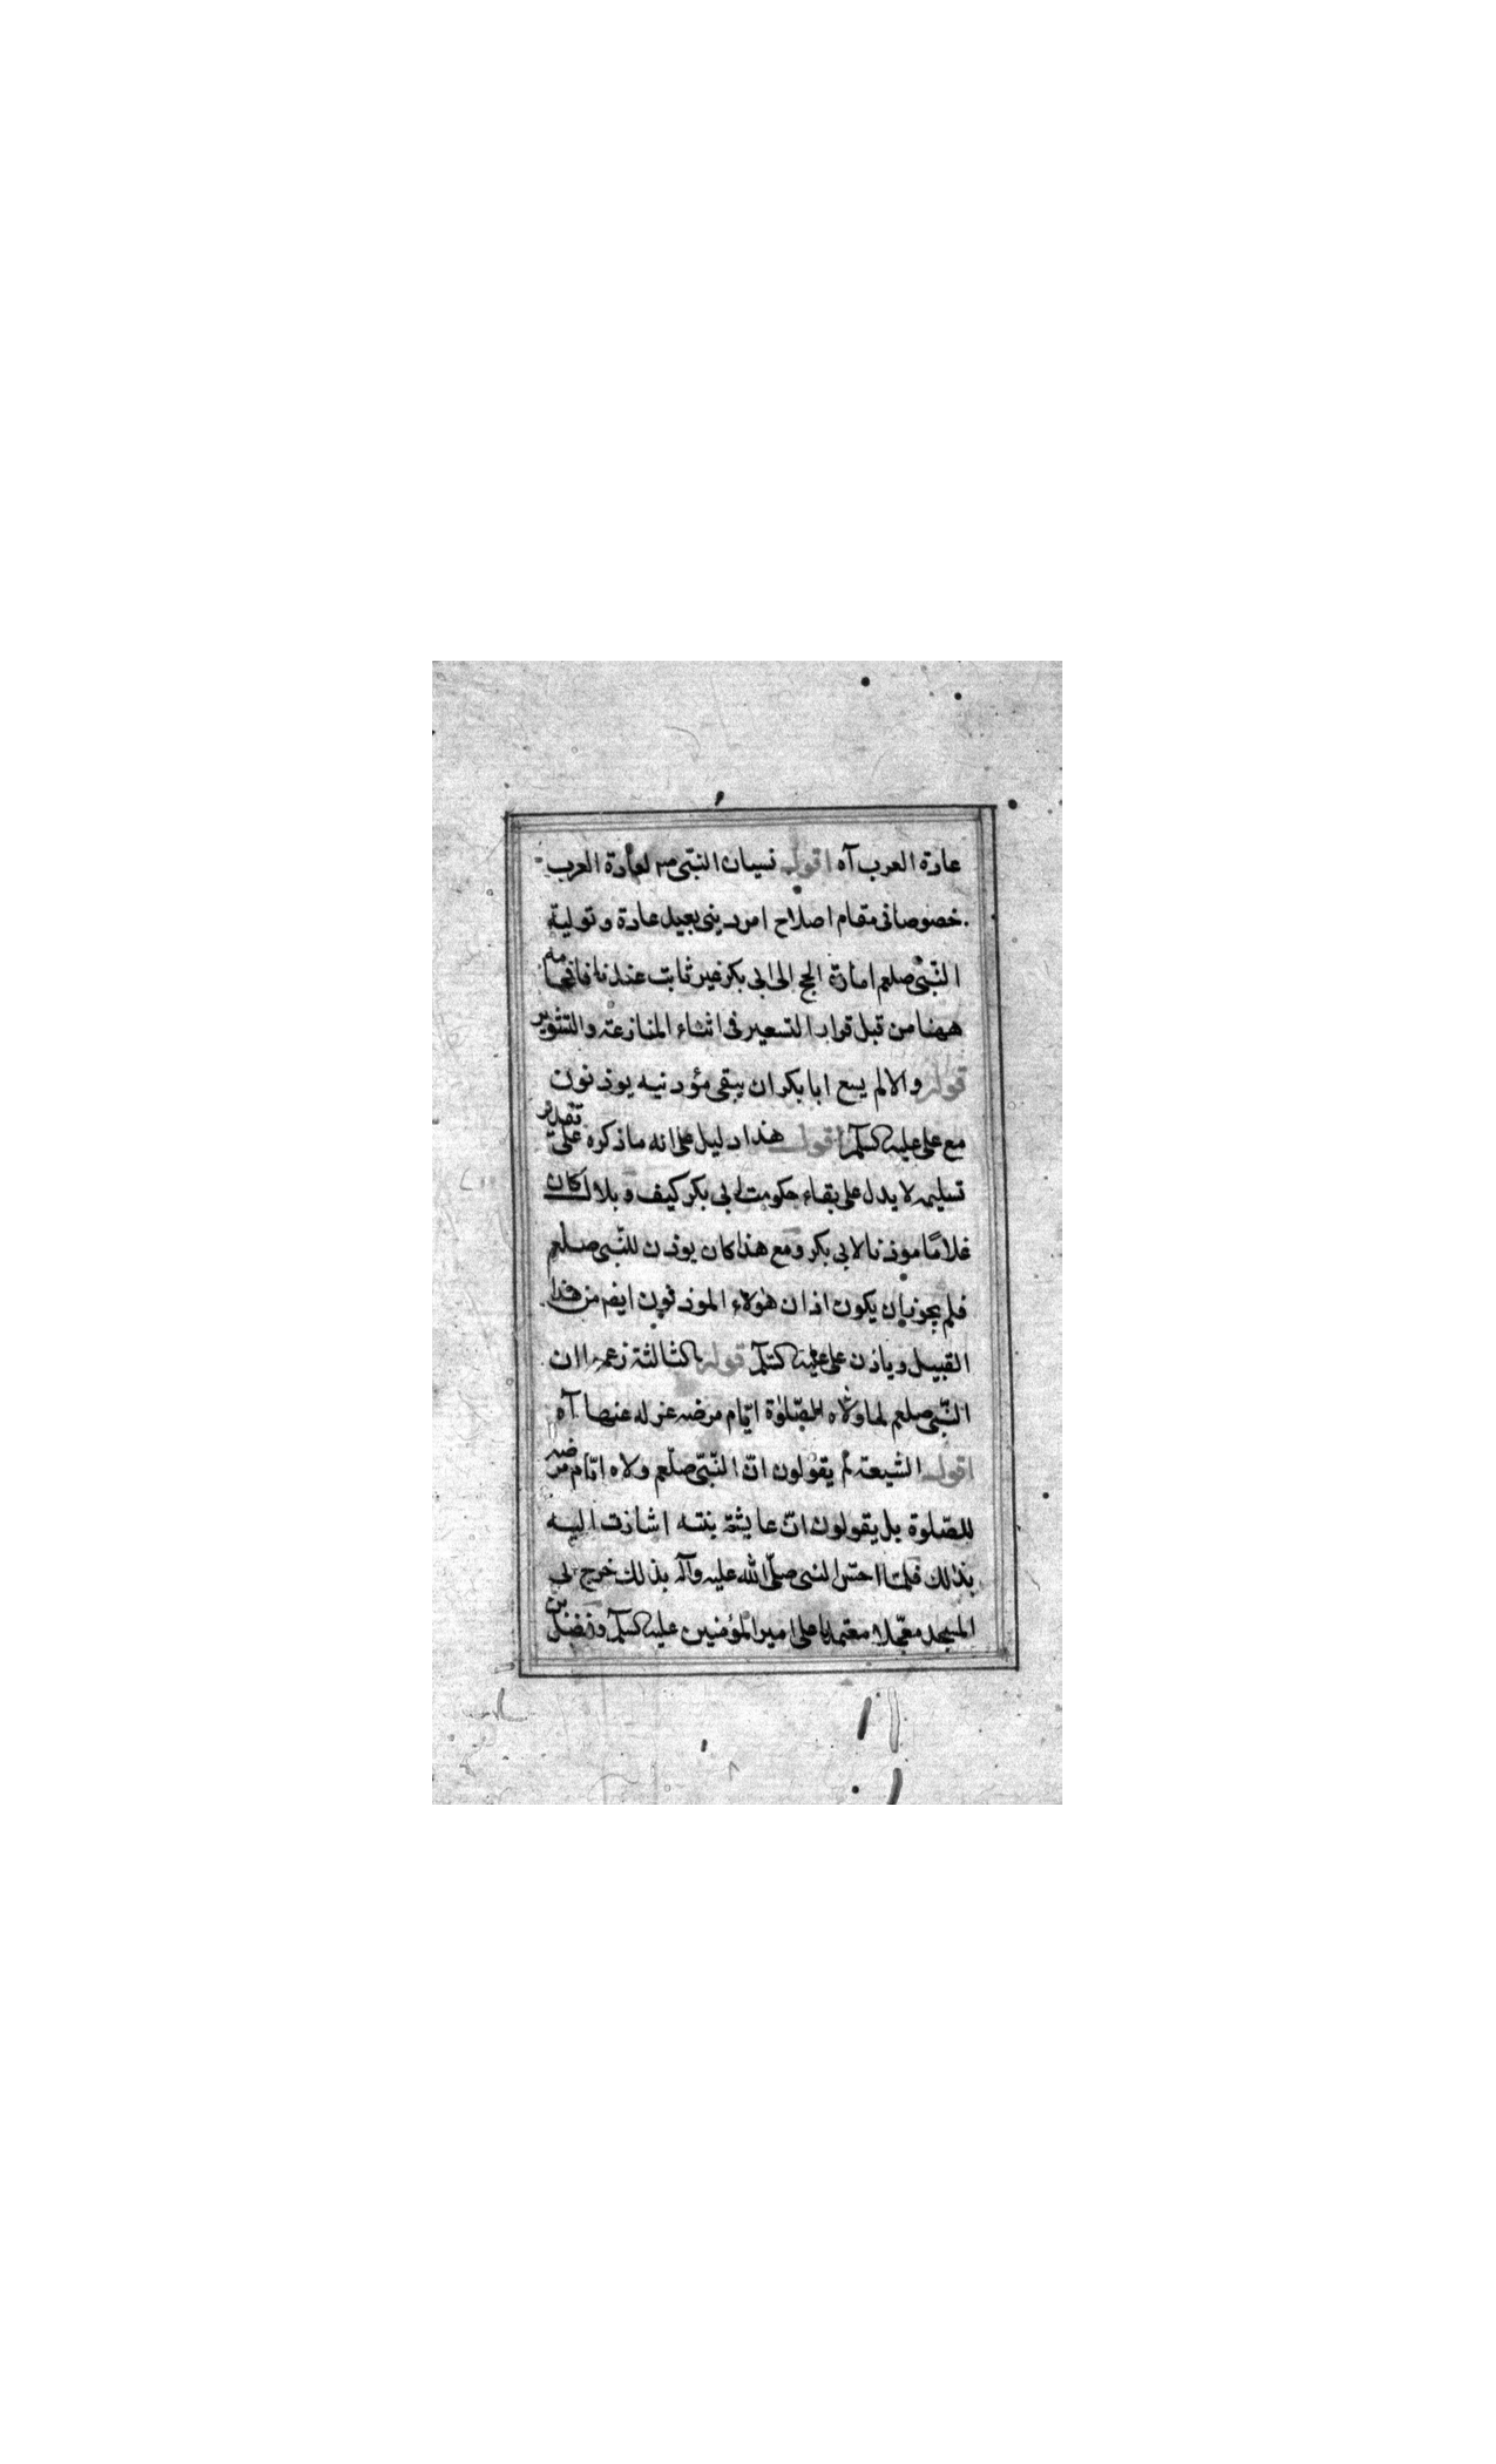 عادة العرب آه اقول نسيان النبّى ص لعادة العرب
خصوصا فى مقام اصلاح امر دينى بعيد عادة و تولية
النّبىّ صلعم امارة الحج الى ابى بكر غير ثابت عندنا فاتمامه
ههنا من قبل قرار التسعير فى اثناء المنازعة والتثوير
قوله والا لم يسع ابا بكر ان يبقى مؤذنيه يوذنون
مع على عليه السلام اقول هذا دليل على انه ماذكره على تقدير
تسليمه لا يدل على بقاء حكومت ابى بكر كيف و بلال كان
غلامًا موذنا لابى بكر و مع هذا كان يوذن للنّبى صلعم
فلم يجوز بان يكون اذان هؤلاء الموذنون ايضم من هذا
القبيل و ياذن على عليه السلام قوله الثالثة زعموا ان
النّبى صلعم لما ولاه الصّلوة ايّام مرضه عزله عنها آه
اقول الشيعة لم يقولون انّ النّبىّ صلّعم ولاه ايّام مرضه
للصّلوة بل يقولون انّ عايشة بنته اشارت اليه
بذلك فلمّا احسّ النبى صلّى الله عليه وآله بذلك خرج الى
المسجد معجّلا معتمدا على امير المؤمنين عليه السلام وفضل بن